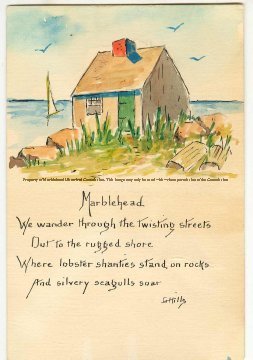 Property of Marblehead Historical Commission. This image may only be used with written permission of the Commission
Marblehead
We wander through the twisting streets
Out to the rugged shore
Where lobster shanties stand on rocks
And silvery seagulls soar